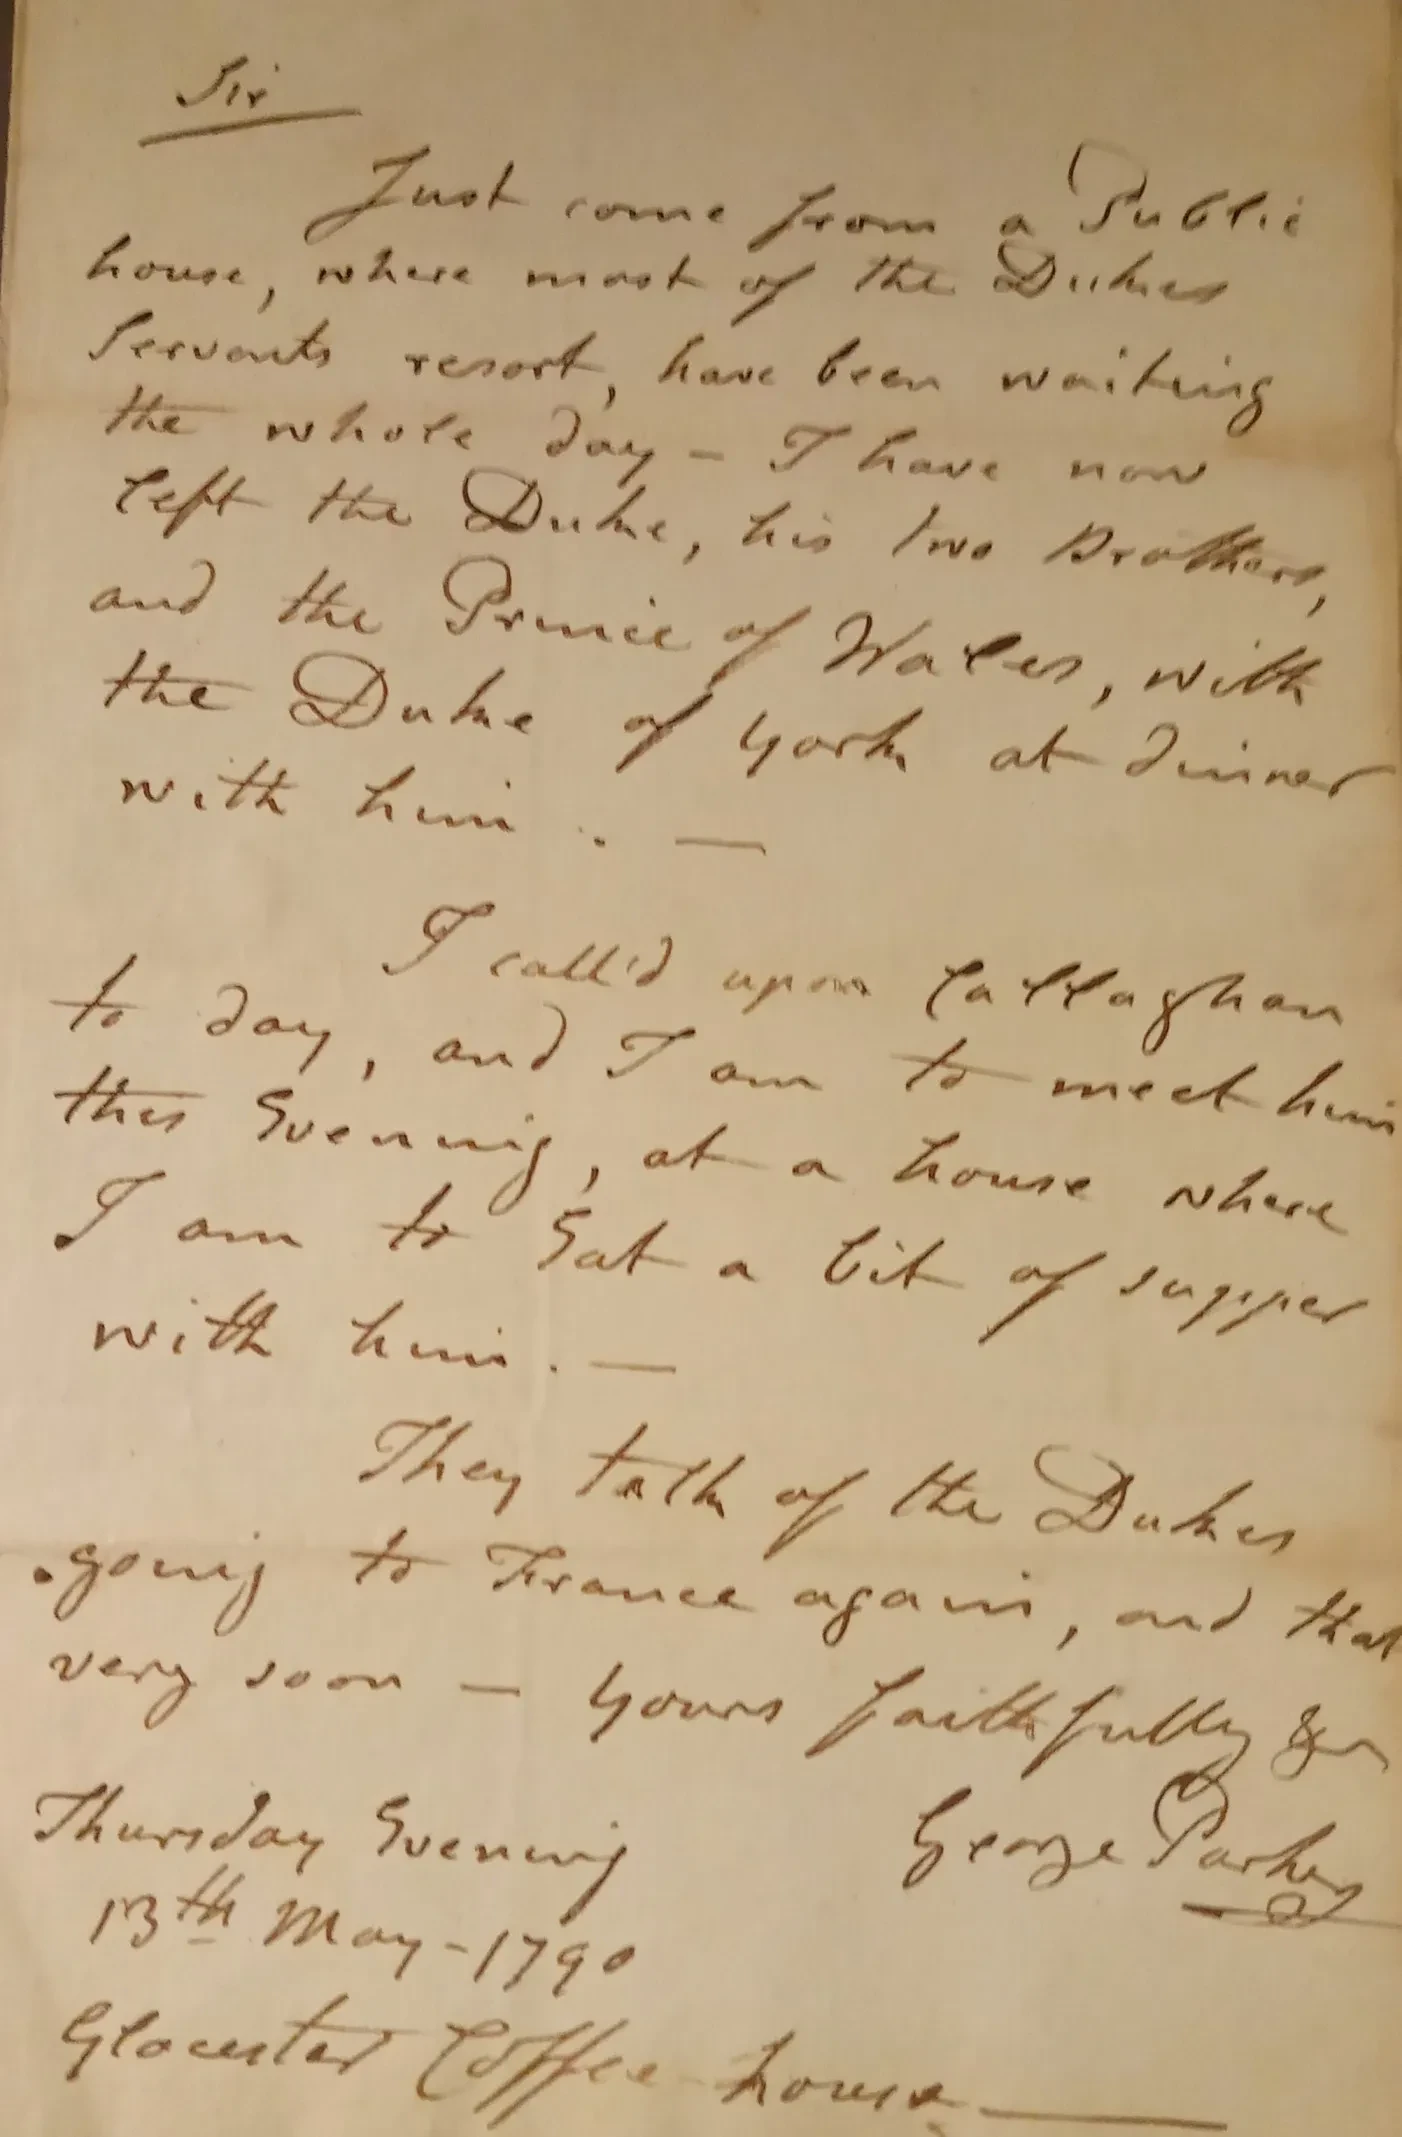 Sir
Just come from a Public
house, where most of the Dukes
Servants resort, have been waiting
the whole day - I have now
left the Duke, his two Brothers,
and the Prince of Wales, with
the Duke of York at dinner
with him. —
I call'd upon Callaghan
to day, and I am to meet him
this Evening, at a house where
I am to Eat a bit of supper
with him. —
They talk of the Dukes
going to France again, and that
very soon — Yours faithfully &c
George Parker
Thursday Evening
13th May - 1790
Glocester Coffee-house —